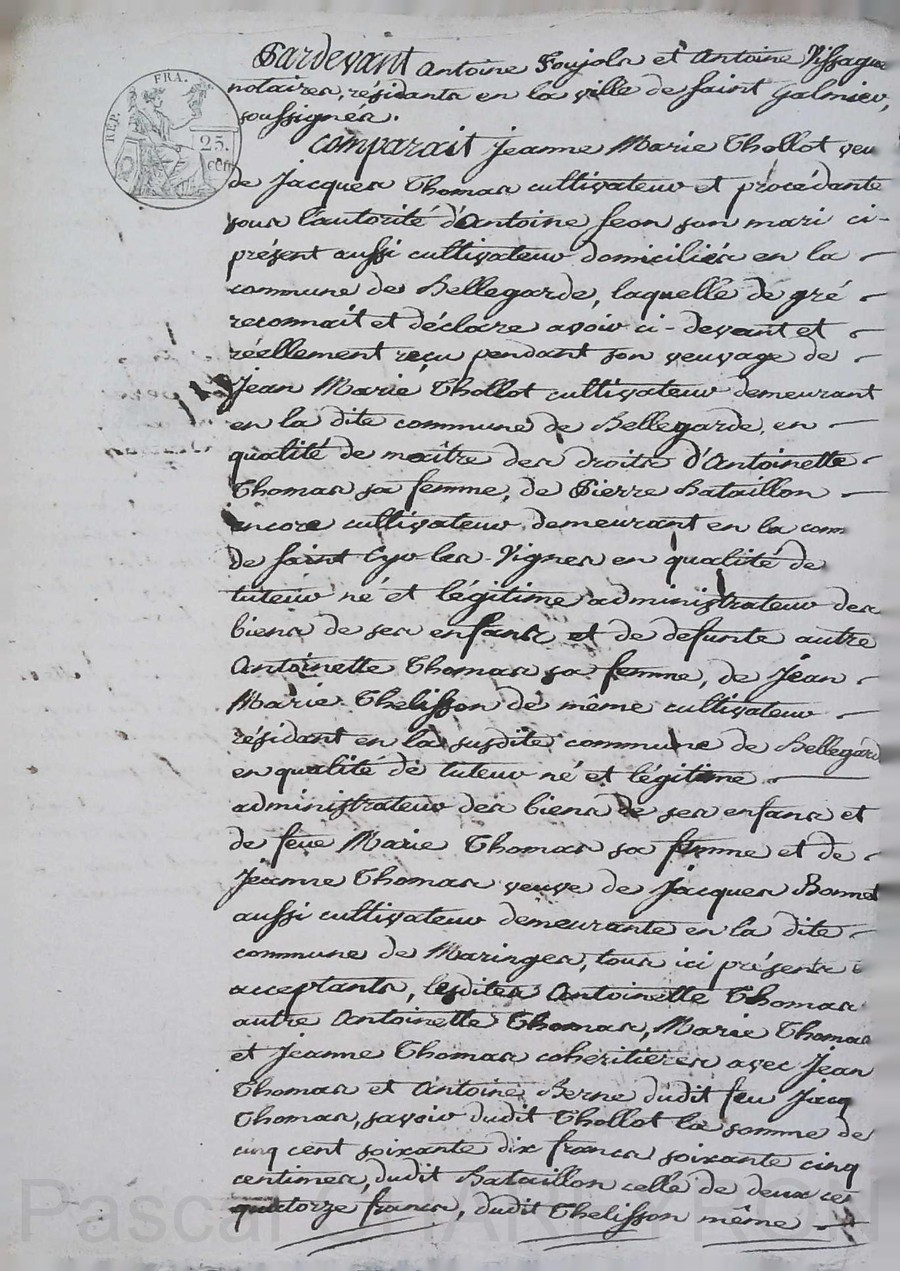 REP. FRA.
25. cen
Pardevant Antoine Soujols et Antoine Vissague
notaires, résidants en la ville de Saint Galmier,
soussignés.
Comparait Jeanne Marie Thollot veu
de Jacques Thomas cultivateur et procédante
sous l'autorité d'Antoine Jeon son mari ci-
présent aussi cultivateur domiciliés en la
commune de Bellegarde, laquelle de gré
reconnait et déclare avoir ci-devant et
réellement reçu pendant son veuvage de
Jean Marie Thollot cultivateur demeurant
en la dite commune de Bellegarde, en
qualité de maître des droits d'Antoinette
Thomas sa femme, de Pierre Bataillon
encore cultivateur demeurant en la com
de Saint Cyr-les-Vignes en qualité de
tuteur né et légitime administrateur des
biens de ses enfans et de defunte autre
Antoinette Thomas sa femme, de Jean
Marie Thelisson de même cultivateur
résidant en la susdite commune de Bellegard
en qualité de tuteur né et légitime
administrateur des biens de ses enfans et
de feue Marie Thomas sa femme et de
Jeanne Thomas veuve de Jacques Bonnet
aussi cultivateur demeurante en la dite
commune de Maringes, tous ici présents
acceptants, lesdites Antoinette Thomas
autre Antoinette Thomas, Marie Thomas
et Jeanne Thomas coheritieres avec Jean
Thomas et Antoine Berne dudit feu Jacq
Thomas, savoir dudit Thollot la somme de
cinq cent soixante dix francs soixante cinq
centimes, dudit Bataillon celle de deux ce
quatorze francs, dudit Thelisson même
Pascal